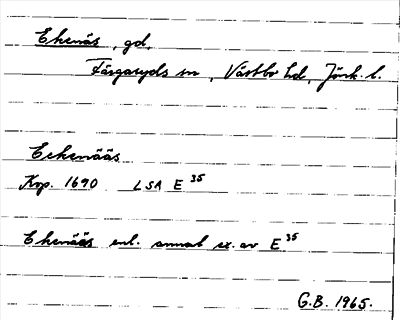 Ekenäs, gd,
Färgaryds sn, Västbo hd, Jönk. l.
Eckenääs
Kop. 1690 LSA E 35
Ekenääs enl. annat ex. av E 35
G.B. 1965.